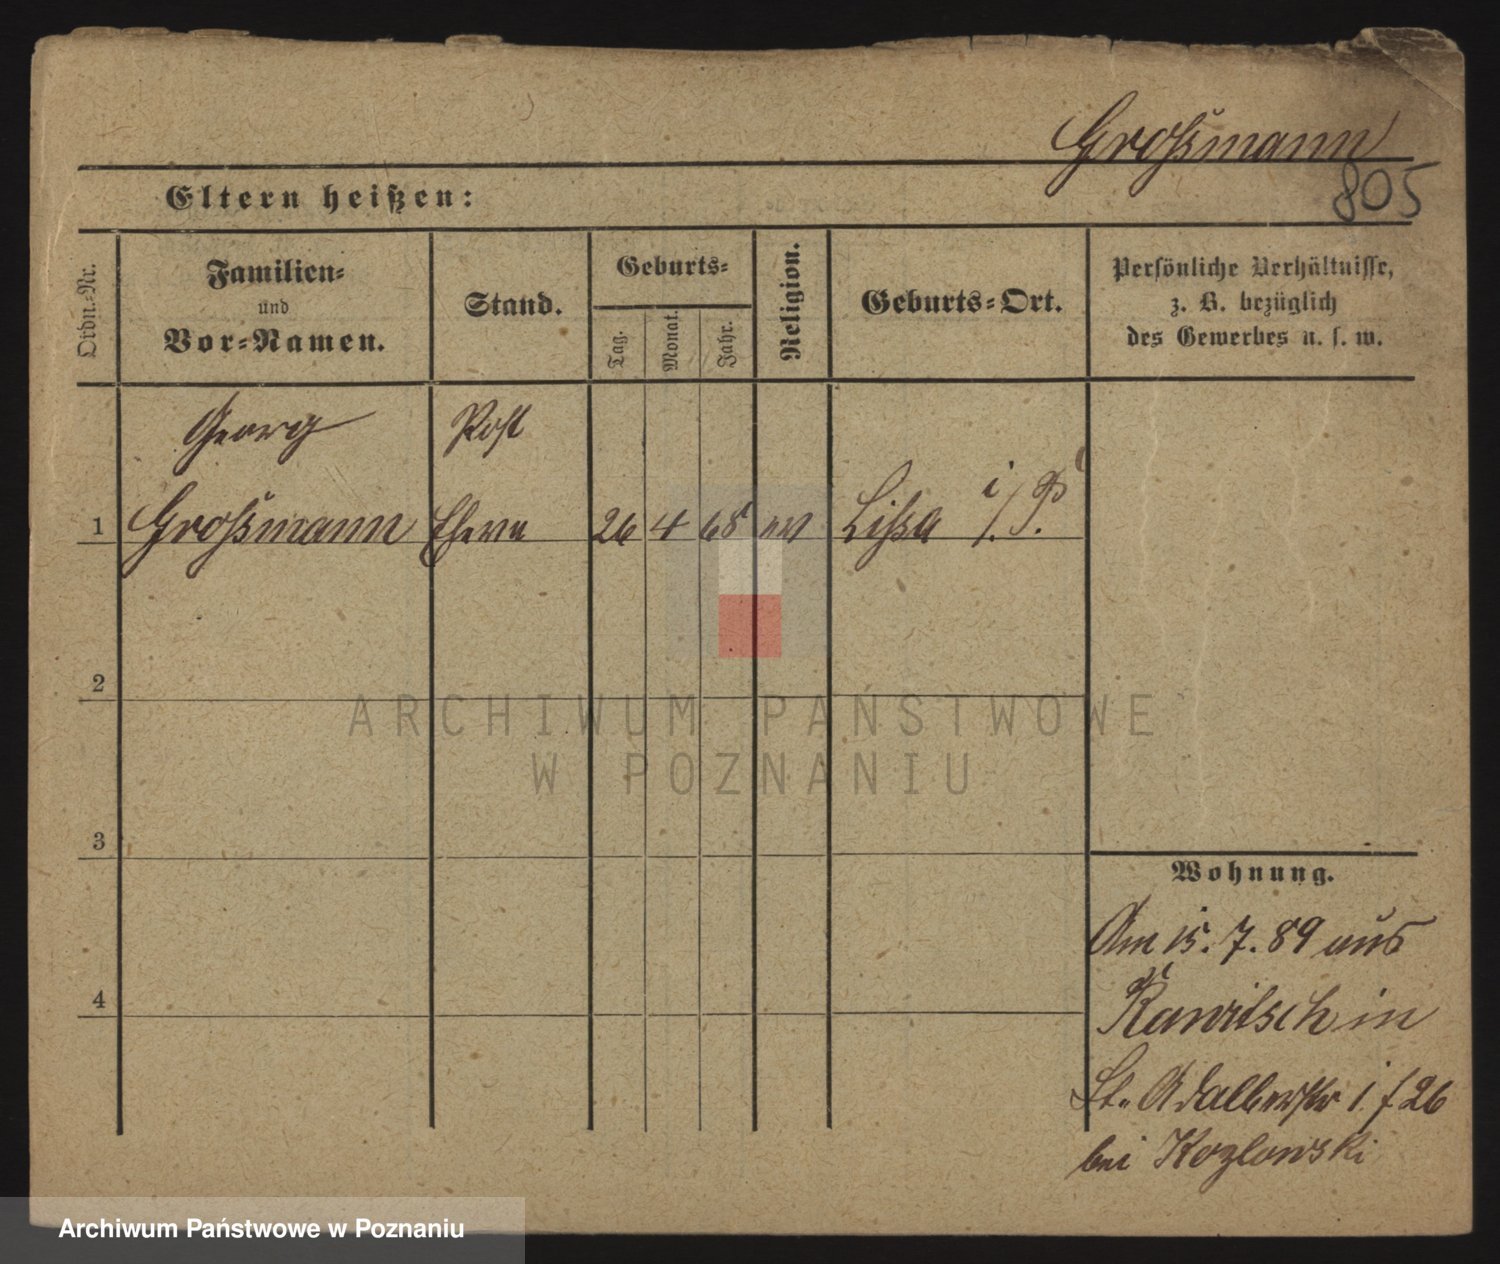 Großmann
805
Eltern heißen:
Ordn.-Nr.
Familien-
und
Vor-Namen.
Stand.
Geburts-
Tag.
Monat.
Jahr.
Religion.
Geburts-Ort.
Persönliche Verhältnisse,
z. B. bezüglich
des Gewerbes u. s. w.
Georg Post
1 Großmann Eleve 26 4 68 ev Lißa i./P.
2
3
4
Wohnung.
Am 15. 7. 89 aus
Rawitsch in
St. Adalbertstr 1 f 26
bei Kozlowski
ARCHIWUM PAŃSTWOWE
W POZNANIU
Archiwum Państwowe w Poznaniu